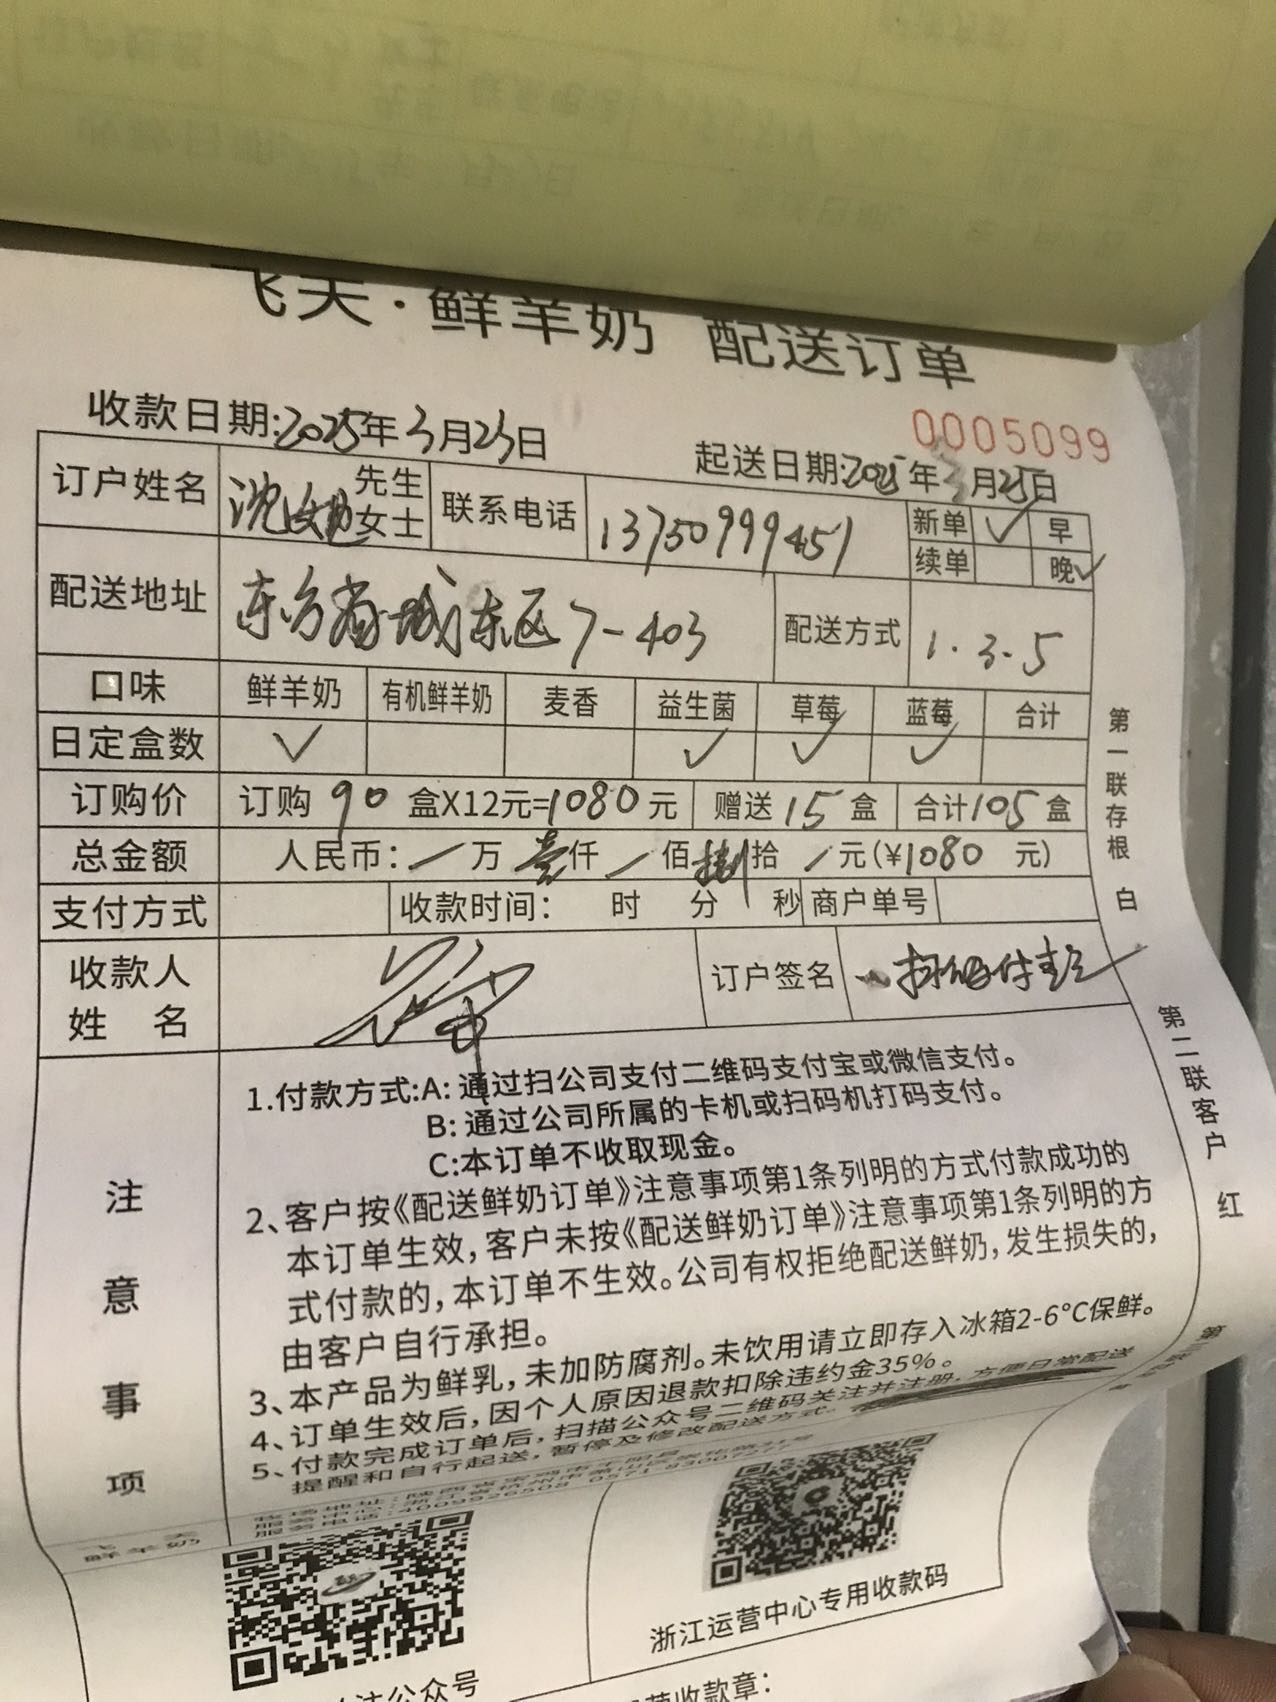 飞天·鲜羊奶 配送订单
0005099
收款日期:2025年3月23日 起送日期:2025年3月25日
订户姓名 沈 先生 女士 联系电话 13750999451 新单 ✓ 早
续单 晚✓
配送地址 东方 城 东区7-403 配送方式 1.3.5
口味 鲜羊奶 有机鲜羊奶 麦香 益生菌 草莓 蓝莓 合计
日定盒数 ✓ ✓ ✓ ✓
订购价 订购 90 盒X12元=1080元 赠送 15 盒 合计105盒
总金额 人民币: 万 壹仟 佰 捌拾 元(¥1080 元)
支付方式 收款时间: 时 分 秒 商户单号
收款人
姓 名 订户签名 扫码付款
注意事项
1.付款方式:A:通过扫公司支付二维码支付宝或微信支付。
B:通过公司所属的卡机或扫码机打码支付。
C:本订单不收取现金。
2、客户按《配送鲜奶订单》注意事项第1条列明的方式付款成功的
本订单生效,客户未按《配送鲜奶订单》注意事项第1条列明的方
式付款的,本订单不生效。公司有权拒绝配送鲜奶,发生损失的,
由客户自行承担。
3、本产品为鲜乳,未加防腐剂。未饮用请立即存入冰箱2-6°C保鲜。
4、订单生效后,因个人原因退款扣除违约金35%。
5、付款完成订单后,扫描公众号二维码关注并注册,方便日常配送
提醒和自行起送,暂停及修改配送方式。
飞天
鲜羊奶
服务电话:4009926508 0571-83007277
浙江运营中心专用收款码
注公众号
收款章:
第一联存根 白
第二联客户 红